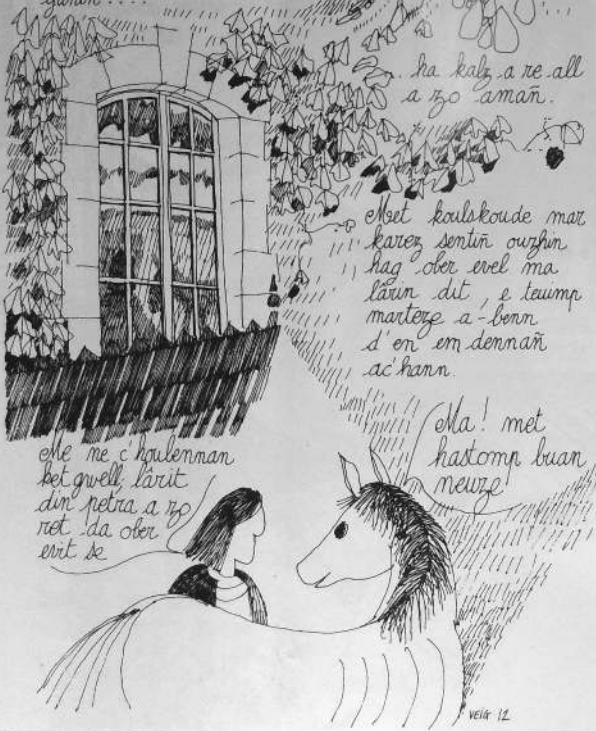 ha kalz a re all
a zo amañ.
Met koulskoude mar
karez sentiñ ouzhin
hag ober evel ma
lârin dit, e teuimp
marteze a-benn
d'en em dennañ
ac'hann.
Me ne c'houlennan
ket gwell, lârit
din petra a zo
ret da ober
evit se
Ma! met
hastomp buan
neuze!
VEIG 12